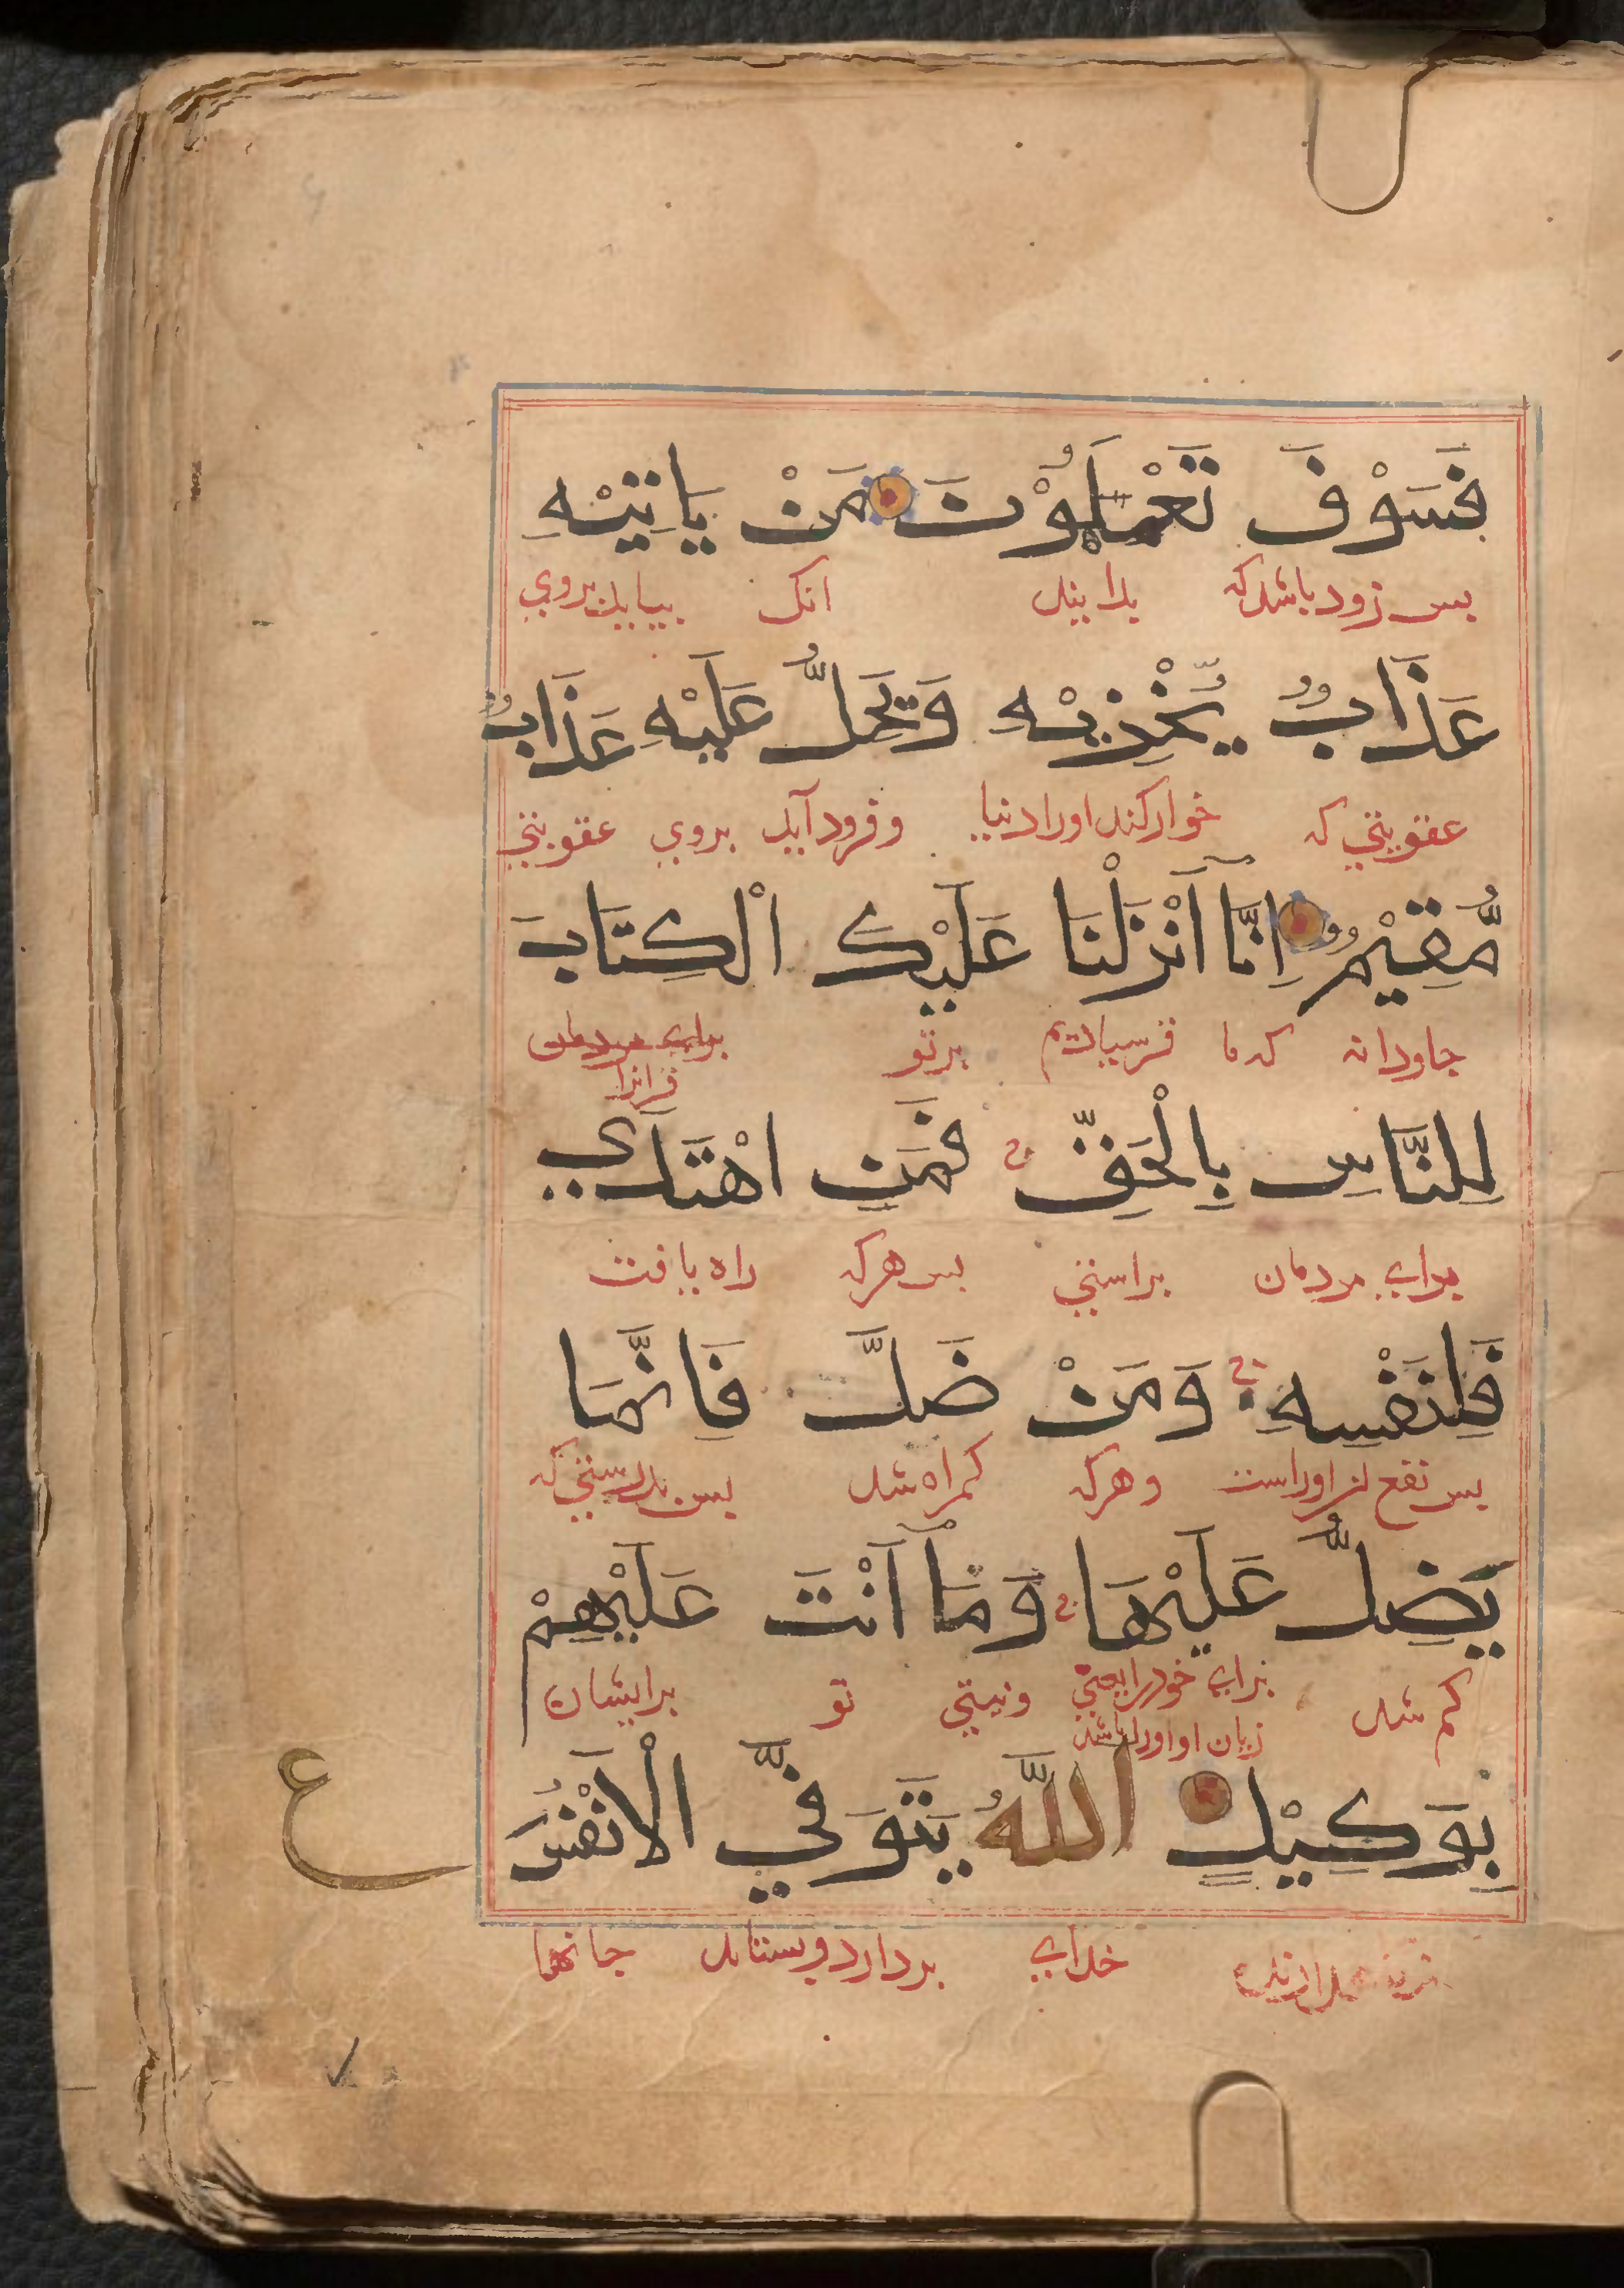 فَسَوْفَ تَعْمَلَمُوْنَ مَنْ يَاتِيْهِ
بس زود باشد که بدانید انک بیاید بروي
عَذَابٌ يُّخْزِيْهِ وَيَحِلُّ عَلَيْهِ عَذَابٌ
عقوبتي که خوار کند اورا دنیا و فرود آید بروي عقوبتي
مُّقِيْمٌ اِنَّآ اَنْزَلْنَا عَلَيْكَ الْكِتَابَ
جاودانه که ما فرستادیم برتو برای مردمان
قرانرا
لِلنَّاسِ بِالْحَقِّ ج فَمَنِ اهْتَدَي
براے مردمان براستي بس هرکه راه یافت
فَلِنَفْسِهِ ج وَمَنْ ضَلَّ فَاِنَّمَا
بس نفع از اوراست و هرکه کمراه شد بس بدرستي که
يَضِلُّ عَلَيْهَا ج وَمَآ اَنْتَ عَلَيْهِمْ
کم شد براے خود را یعني ونیتي تو برایشان
زیان او اورا باشد
بِوَكِيْلٍ اللّٰهُ يَتَوَفَّي الْاَنْفُسَ
ع
خداے بردارد و بستاند جانها